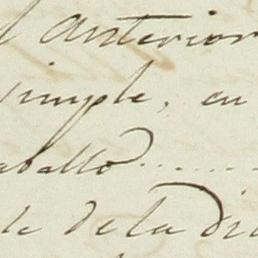 l anterior
simple, en
caballo.......
de de la di